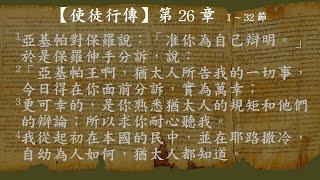 【使徒行傳】第 26 章 1~32 節
1亞基帕對保羅說：「准你為自己辯明。」
於是保羅伸手分訴，說：
2「亞基帕王啊，猶太人所告我的一切事，
今日得在你面前分訴，實為萬幸；
3更可幸的，是你熟悉猶太人的規矩和他們
的辯論；所以求你耐心聽我。
4我從起初在本國的民中，並在耶路撒冷，
自幼為人如何，猶太人都知道。